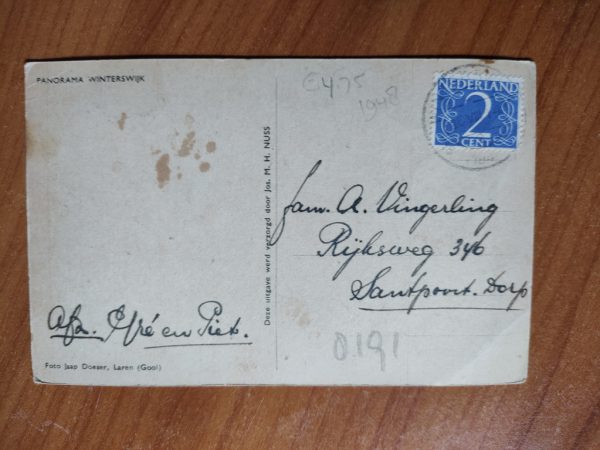 PANORAMA WINTERSWIJK
€4,75
1948
NEDERLAND
2
CENT
Deze uitgave werd verzorgd door Jos. M. H. NUSS
fam. A. Vingerling
Rijksweg 346
Santpoort-Dorp
Afz. en Piet.
0191
Foto Jaap Doeser, Laren (Gooi)